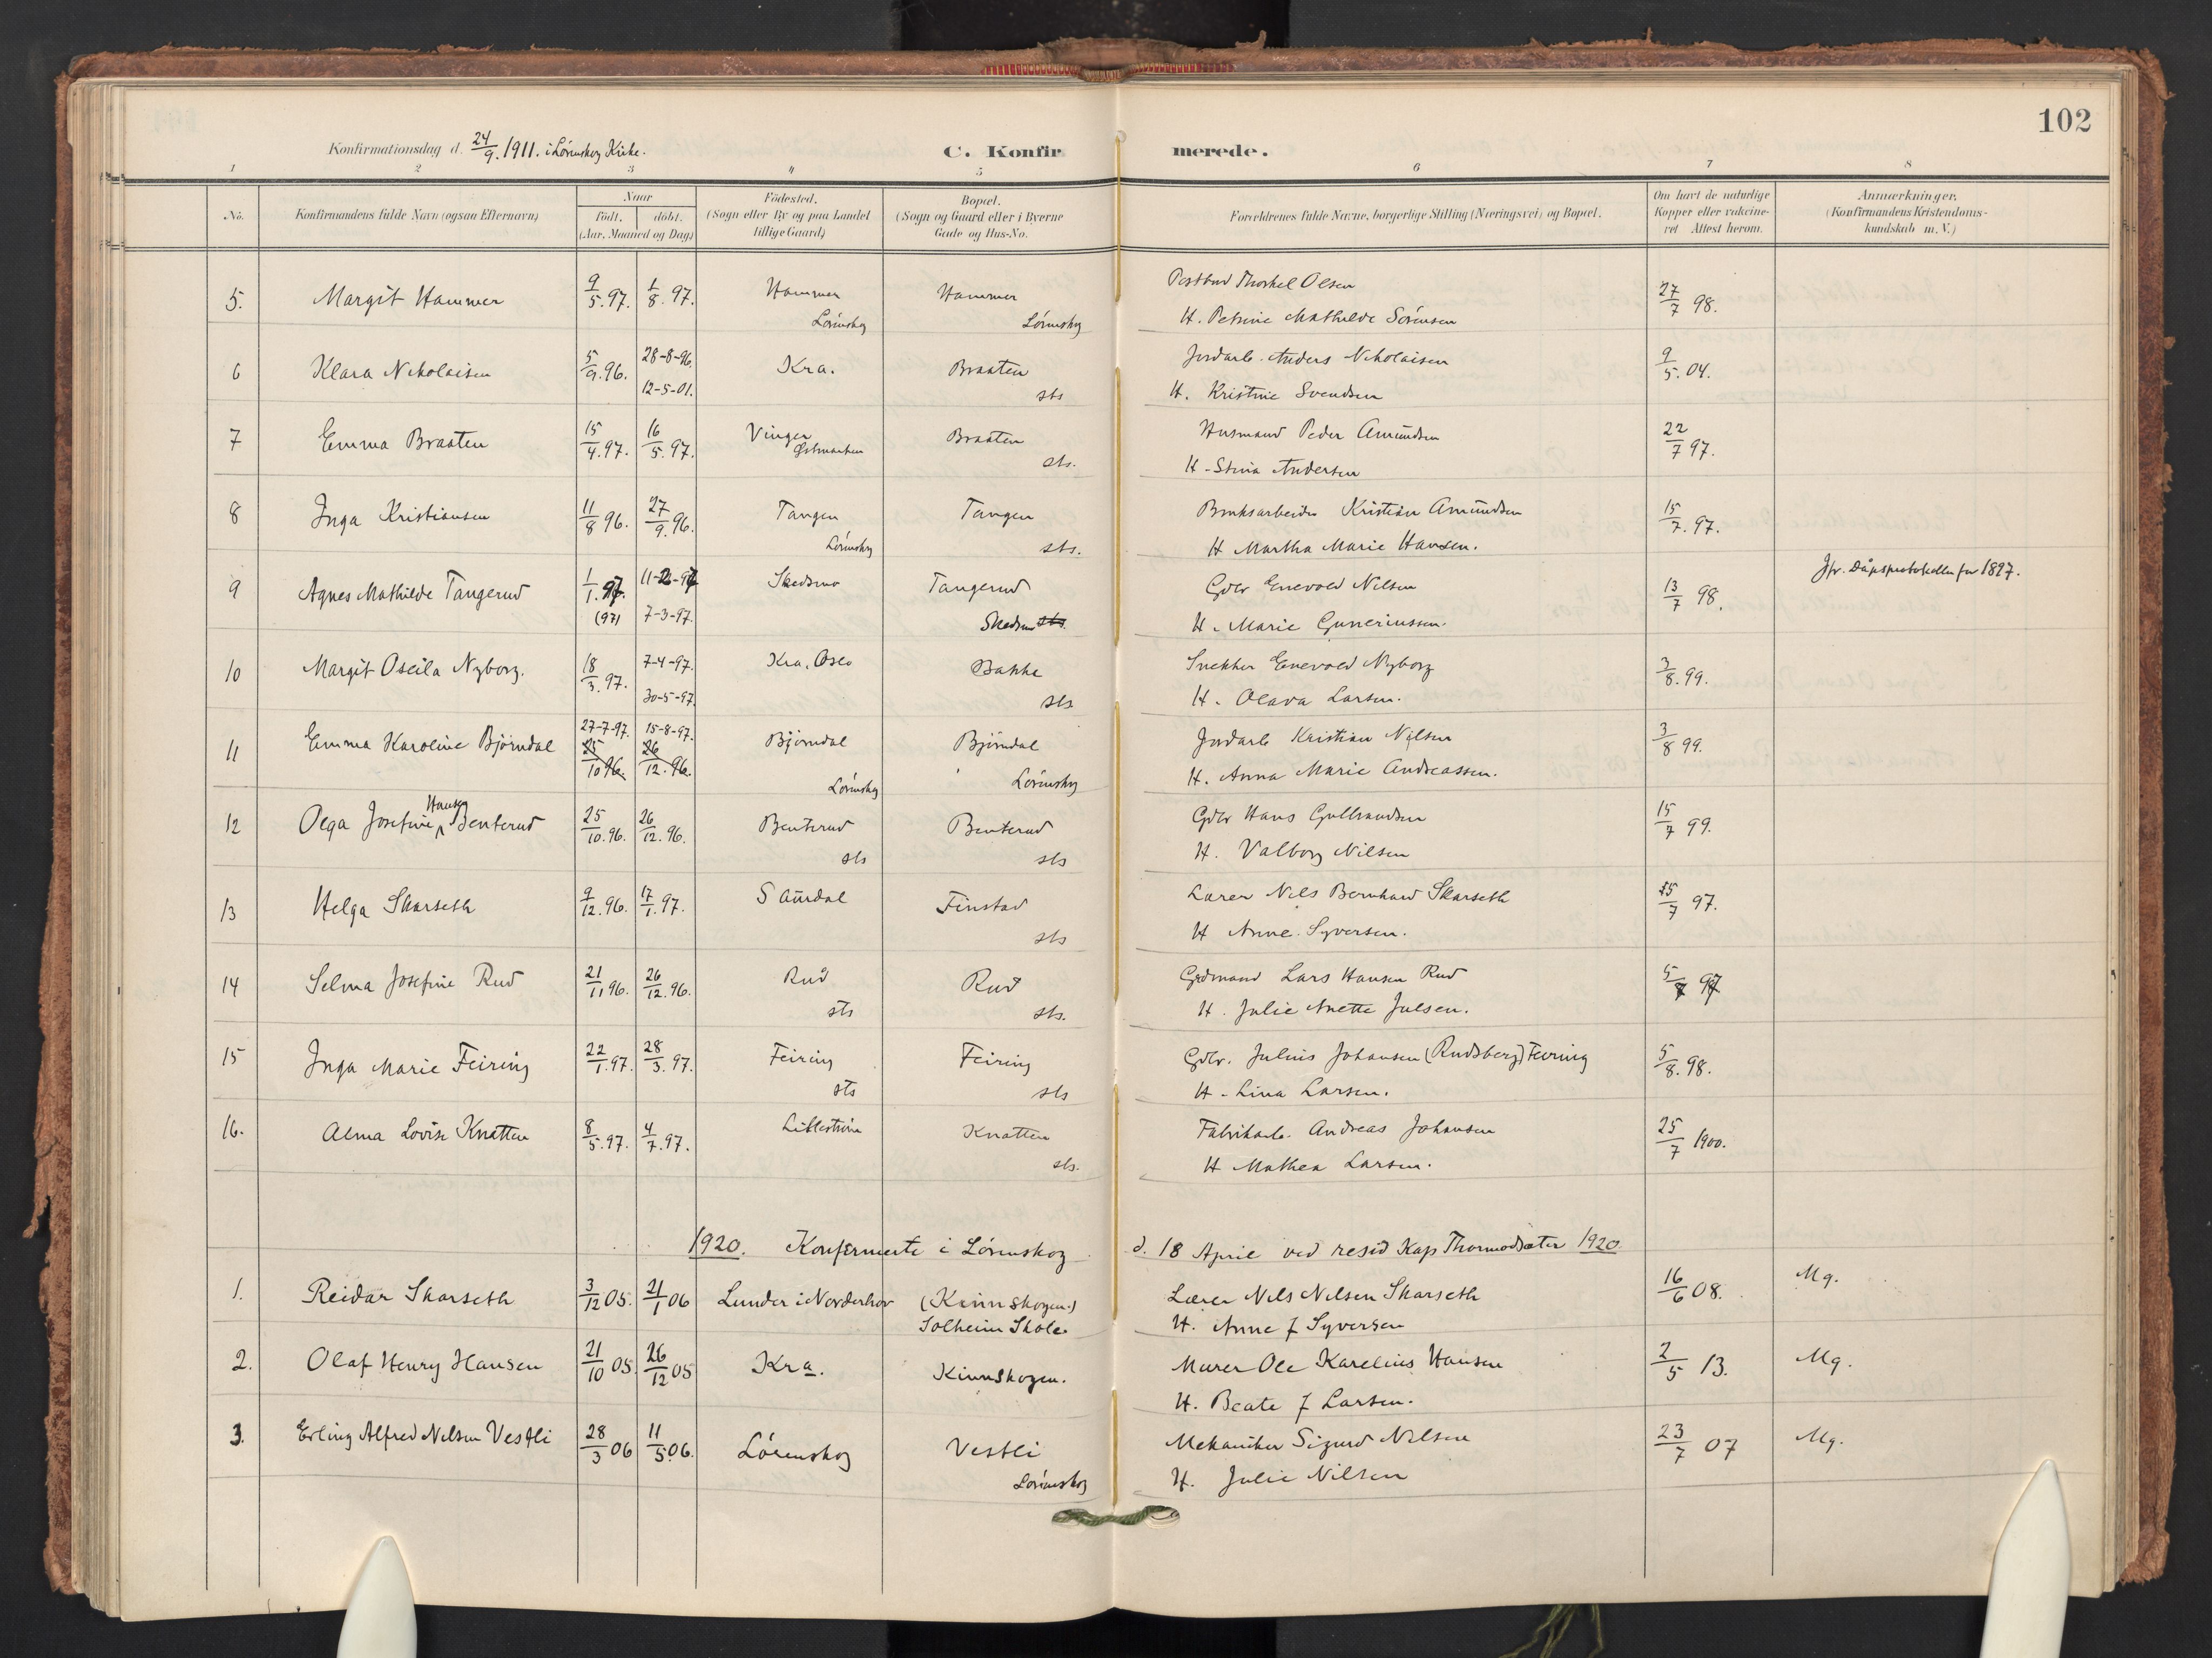 102
Konfirmationsdag d. 24/9. 1911. i Lørenskog Kirke.
C. Konfirmerede.
1 2 3 4 5 6 7 8
No. Konfirmandens fulde Navn (ogsaa Efternavn) Naar födt. döbt. (Aar, Maaned og Dag) Födested. (Sogn eller By og paa Landet tillige Gaard) Bopæl. (Sogn og Gaard eller i Byerne Gade og Hus-No. Forældrenes fulde Navne, borgerlige Stilling (Næringsvei) og Bopæl. Om havt de naturlige Kopper eller vakcineret Attest herom. Anmærkninger. (Konfirmandens Kristendomskundskab m. V.)
5. Margit Hammer 9/5.97. 1/8.97. Hammer Hammer Postbud Thorkel Olsen 27/7 98.
Lørenskog Lørenskog H. Petrine Mathilde Sörensen
6 Klara Nikolaisen 5/9.96. 28-8-96. Kra. Braaten Jordarb. Anders Nikolaisen 9/5.04.
12-5-01. sts H. Kristine Svendsen
7 Emma Braaten 15/4.97. 16/5.97. Vinger Østmarken Braaten Husmand Peder Amundsen 22/7 97.
sts. H. Stina Andersen
8 Inga Kristiansen 11/8 96. 27/9.96. Tangen Tangen Bruksarbeider Kristian Amundsen 15/7.97.
Lørenskog sts. H Martha Marie Hansen.
9 Agnes Mathilde Tangerud 1/1.97. Skedsmo Tangerud Gdbr Enevold Nilsen 13/7 98. Jfr. Dåpsprotokollen for 1897.
(97) 7-3-97. Skedsmo sts. H. Marie Gunerinssen.
10 Margit Oseila Nyborg. 18/3.97. 7-4-97. Kra. Oslo Bakke Snekker Enevold Nyborg 3/8.99.
30-5-97. sts H. Olava Larsen.
11 Emma Karoline Björndal 27-7-97. 15-8-97. Björndal Björndal Jordarb Kristian Nilsen 3/8 99.
25/10 96. 26/12.96. Lørenskog Lørenskog H. Anna Marie Andreassen.
12 Olga Josefine Hansen Benterud 25/10.96. 26/12.96. Benterud Benterud Gdbr Hans Gulbrandsen 15/7 99.
sts sts H. Valborg Nilsen
13 Helga Skarseth 9/12.96. 17/1.97. S Aurdal Finstad Lærer Nils Bernhard Skarseth 25/7 97.
sts H Anne Syversen.
14 Selma Josefine Rud 21/11 96. 26/12.96. Rud Rud Grdmand Lars Hansen Rud 5/8 97
sts sts. H. Julie Anette Julsen.
15 Inga Marie Feiring 22/1.97. 28/3.97. Feiring Feiring Gdbr. Julius Johansen (Rudsberg) Feiring 5/8.98.
sts sts H. Lina Larsen.
16. Alma Lovise Knatten 8/5.97. 4/7.97. Lilleström Knatten Fabrikarb. Andreas Johansen 25/7 1900.
sts. H Mathea Larsen.
1920. Konfirmerte i Lörenskog d. 18 April ved resid Kap Thormodsæter 1920.
1. Reidar Skarseth 3/12 05. 21/1 06 Lunder i Norderhov (Kinnskogen.) Lærer Nils Nilsen Skarseth 16/6 08. Mg.
Solheim Skole. H. Anne f Syversen
2. Olaf Henry Hansen 21/10 05. 26/12 05 Kra. Kinnskogen. Murer Ole Karelius Hansen 2/5 13. Mg.
H. Beate f Larsen.
3. Erling Alfred Nilsen Vestli 28/3 06 11/5.06. Lörenskog Vestli Mekaniker Sigurd Nilsen 23/7 07 Mg.
Lörenskog H. Julie Nilsen